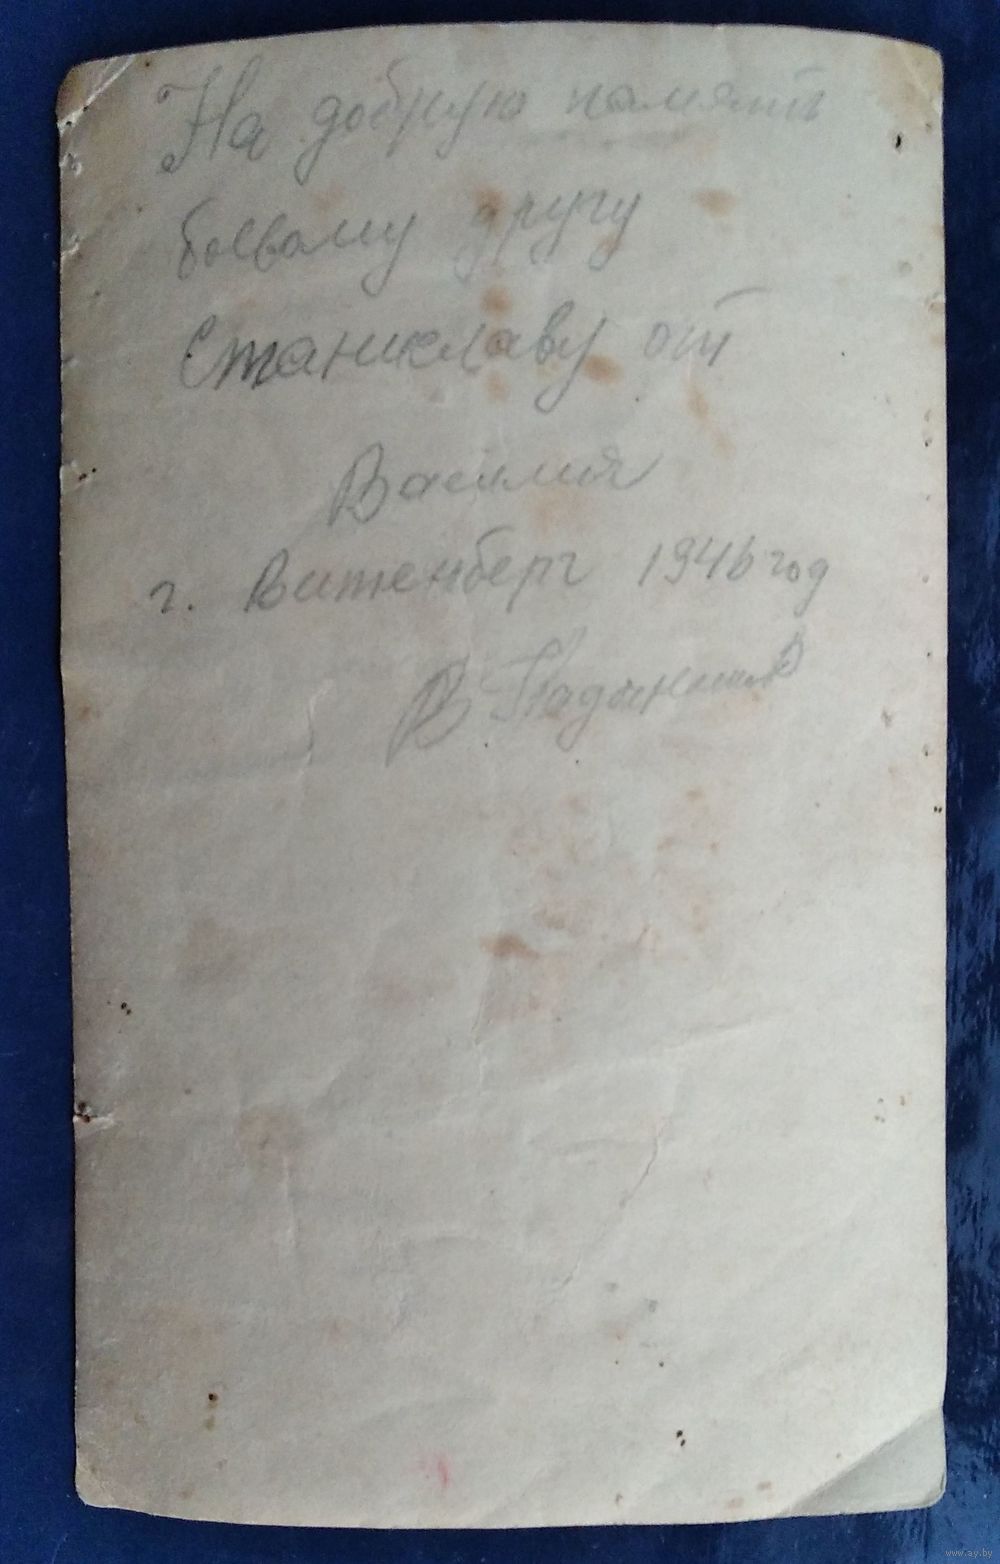 На добрую память
боевому другу
Станиславу от
Василия
г. Витенберг 1946 год
В
www.ay.by